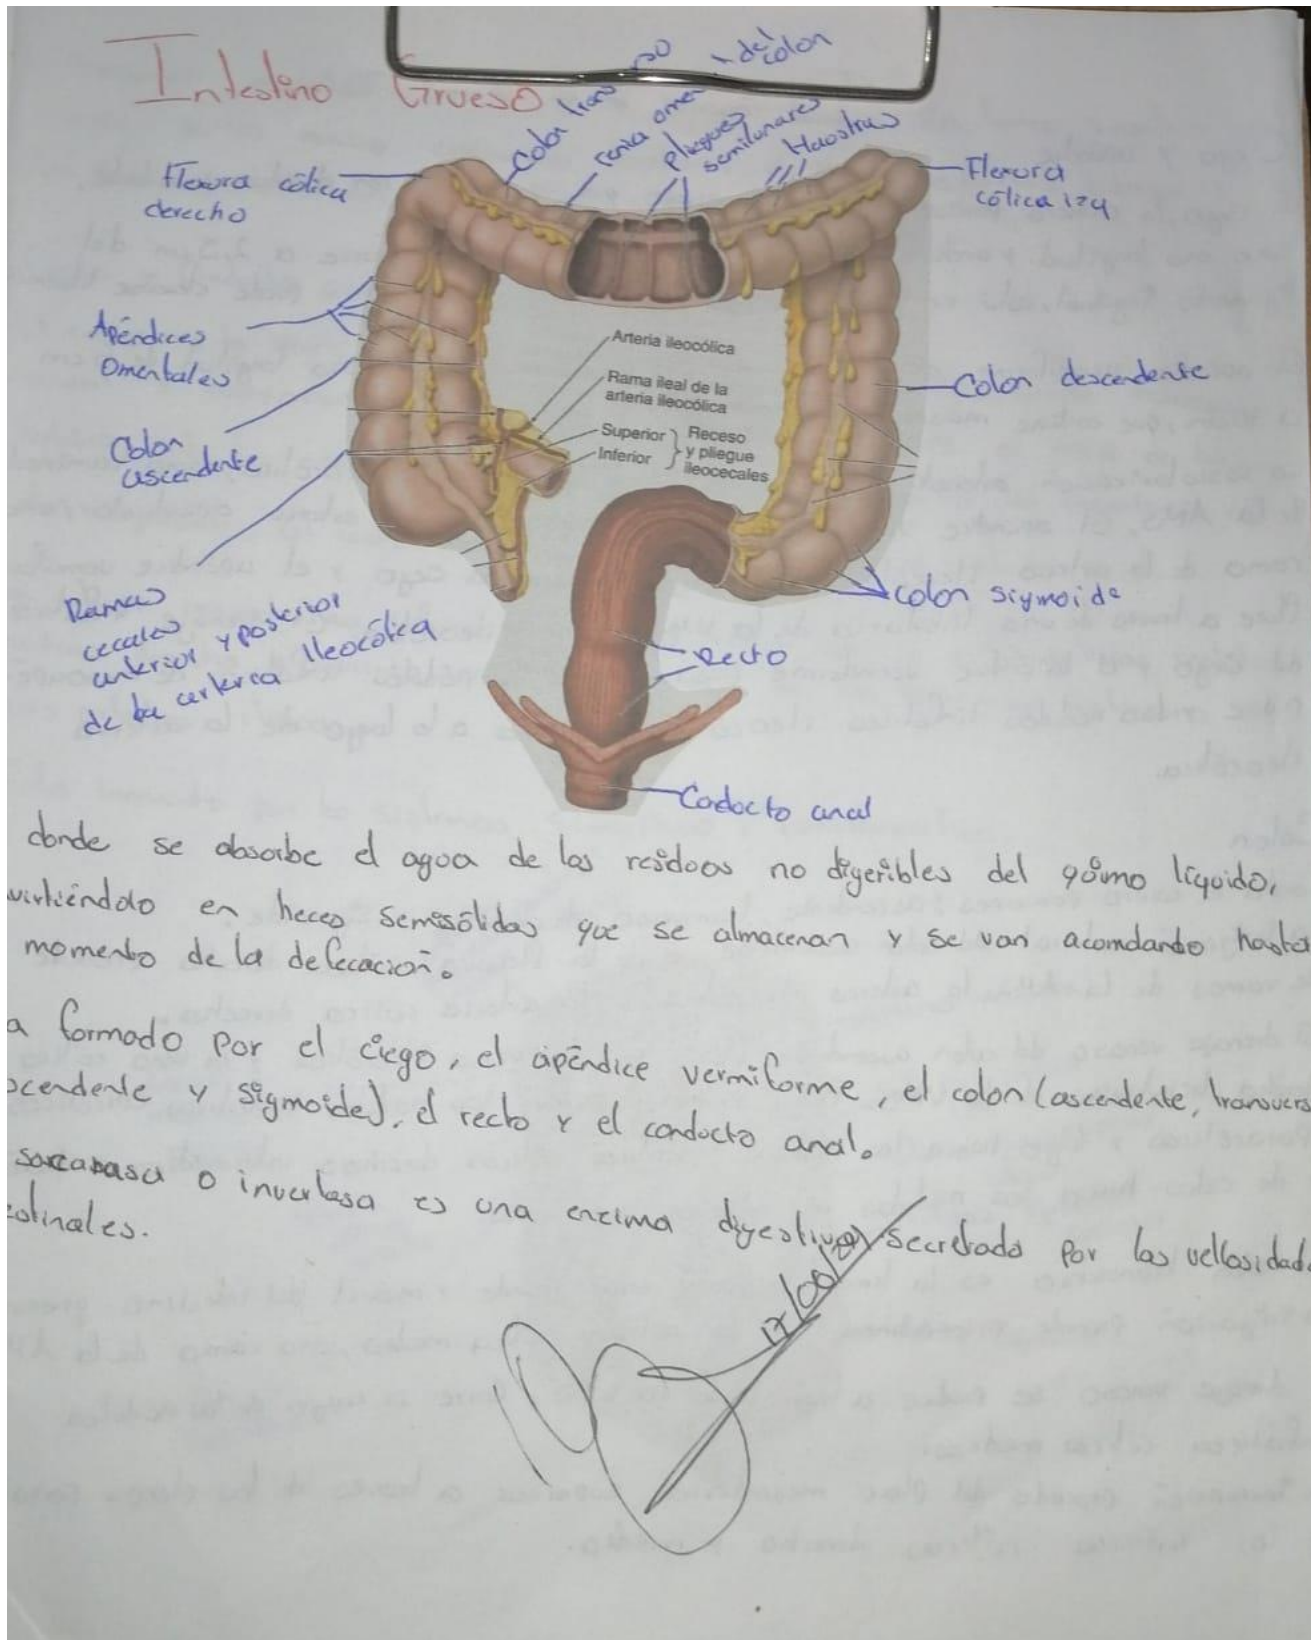 Intestino Grueso
Colon
del colon
Tenia
pliegues
semilunares
Haustras
Flexura cólica
derecho
Flexura
cólica izq
Apéndices
Omentales
Arteria ileocólica
Rama ileal de la
arteria ileocólica
Superior
Inferior
Receso
y pliegue
ileocecales
Colon descendente
Colon
ascendente
Ramas
cecales
anterior y posterior
de la arteria Ileocólica
colon sigmoide
Recto
Conducto anal
donde se absorbe el agua de los residuos no digeribles del quimo líquido,
virtiéndolo en heces semisólidas que se almacenan y se van acomdando hasta
momento de la defecación.
a formado por el ciego, el apéndice vermiforme, el colon (ascendente, transvers
scendente y sigmoide), el recto y el conducto anal.
o invertasa es una enzima digestiva secretada por las vellosidad
estinales.